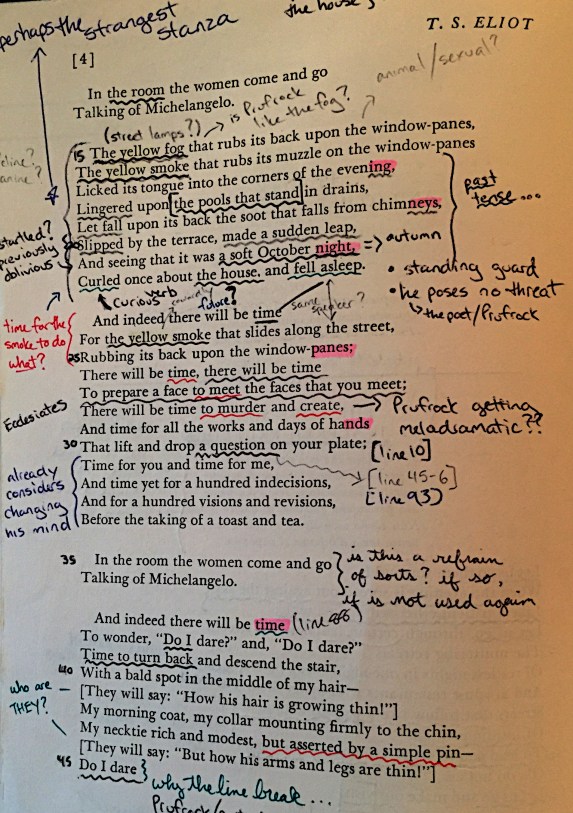 perhaps the strangest stanza
the house
T. S. ELIOT
[4]
In the room the women come and go
Talking of Michelangelo.
animal/sexual?
(street lamps?)
is Prufrock like the fog?
15 The yellow fog that rubs its back upon the window-panes,
The yellow smoke that rubs its muzzle on the window-panes
Licked its tongue into the corners of the evening,
Lingered upon the pools that stand in drains,
Let fall upon its back the soot that falls from chimneys,
Slipped by the terrace, made a sudden leap,
And seeing that it was a soft October night, => autumn
Curled once about the house, and fell asleep.
past tense...
startled? previously oblivious
• standing guard
• he poses no threat
the poet/Prufrock
curious verb
future?
same speaker?
And indeed there will be time
For the yellow smoke that slides along the street,
25 Rubbing its back upon the window-panes;
There will be time, there will be time
To prepare a face to meet the faces that you meet;
There will be time to murder and create,
And time for all the works and days of hands
30 That lift and drop a question on your plate; [line 10]
Time for you and time for me,
And time yet for a hundred indecisions, [line 45-6]
And for a hundred visions and revisions, (line 93)
Before the taking of a toast and tea.
time for the smoke to do what?
Ecclesiates
Prufrock getting meladramatic??
already considers changing his mind
35 In the room the women come and go
Talking of Michelangelo.
is this a refrain of sorts? if so, it is not used again
And indeed there will be time
To wonder, “Do I dare?” and, “Do I dare?”
Time to turn back and descend the stair,
40 With a bald spot in the middle of my hair—
[They will say: “How his hair is growing thin!”]
My morning coat, my collar mounting firmly to the chin,
My necktie rich and modest, but asserted by a simple pin—
[They will say: “But how his arms and legs are thin!”]
45 Do I dare
who are THEY?
why the line break...